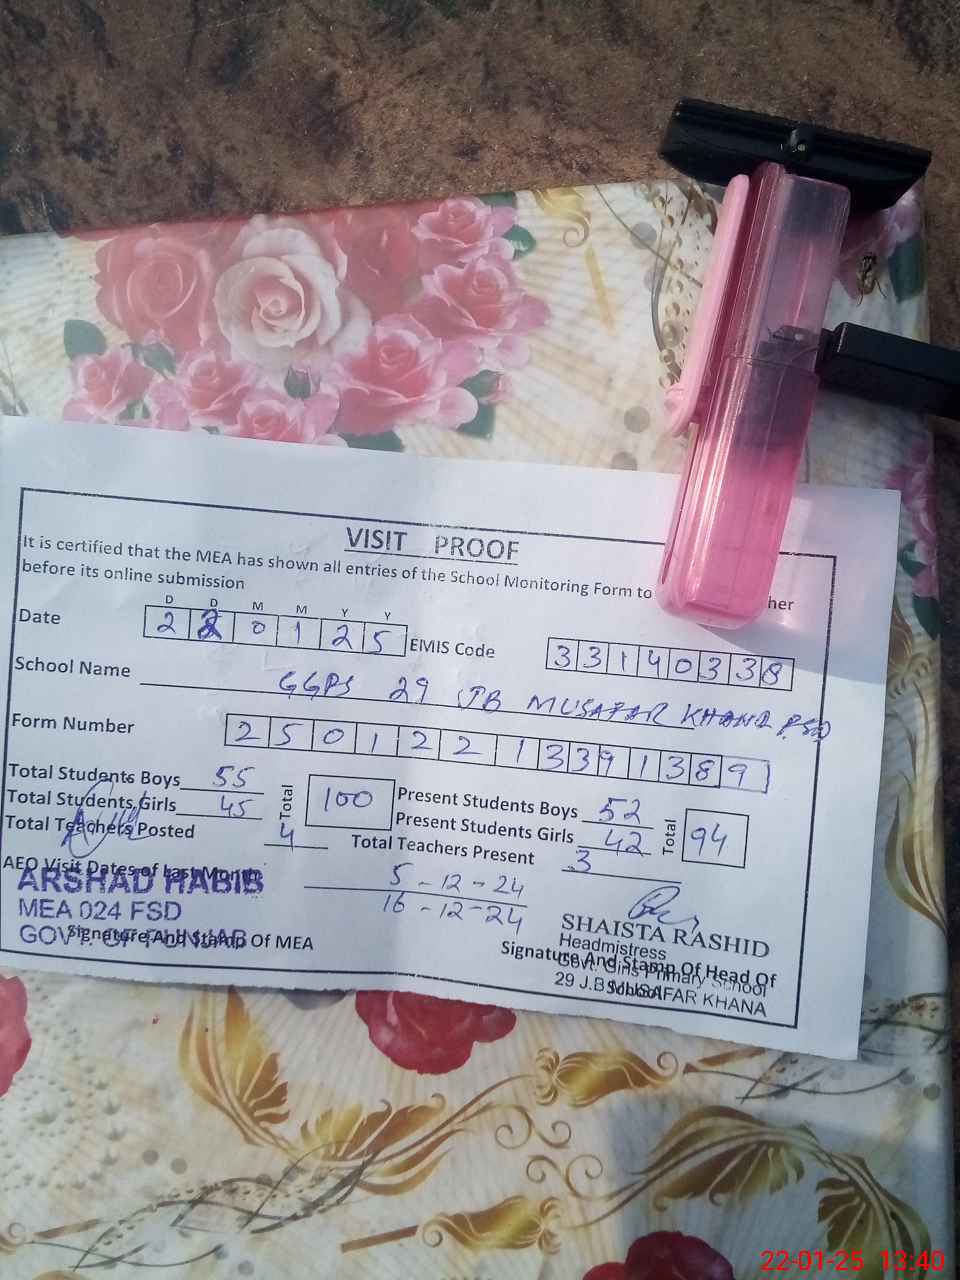 VISIT PROOF
It is certified that the MEA has shown all entries of the School Monitoring Form to her
before its online submission
D D M M Y Y
Date 2 2 0 1 2 5 EMIS Code 3 3 1 4 0 3 3 8
School Name GGPS 29 JB MUSAFAR KHANA FSD
Form Number 2 5 0 1 2 2 1 3 3 9 1 3 8 9
Total Students Boys 55 Total 100 Present Students Boys 52 Total 94
Total Students Girls 45 Present Students Girls 42
Total Teachers Posted 4 Total Teachers Present 3
AEO Visit Dates of Last Month 5-12-24
16-12-24
ARSHAD HABIB
MEA 024 FSD
GOVT. OF PUNJAB
Signature And Stamp Of MEA
SHAISTA RASHID
Headmistress
Signature And Stamp Of Head Of
Govt. Girls Primary School
School
29 J.B MUSAFAR KHANA
22-01-25 13:40